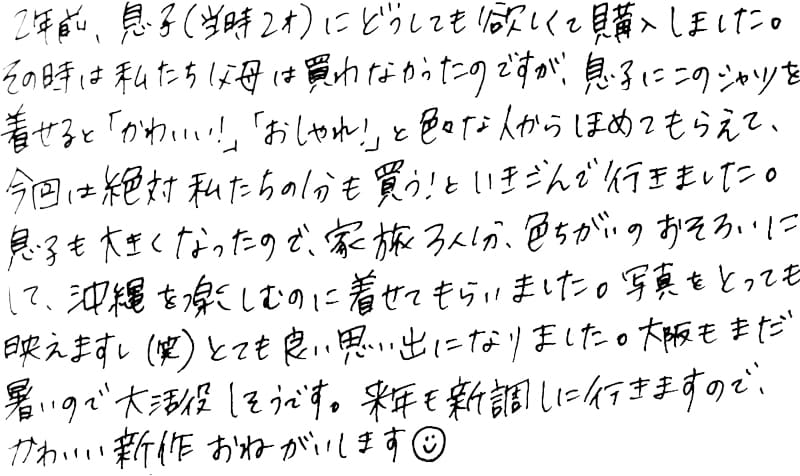 2年前、息子(当時2才)にどうしても欲しくて購入しました。
その時は私たち父母は買わなかったのですが、息子にこのシャツを
着せると「かわいい!」「おしゃれ!」と色々な人からほめてもらえて、
今回は絶対私たちの分も買う!といきごんで行きました。
息子も大きくなったので、家族3人分、色ちがいのおそろいに
して、沖縄を楽しむのに着せてもらいました。写真をとっても
映えますし(笑)とても良い思い出になりました。大阪もまだ
暑いので大活役しそうです。来年も新調しに行きますので、
かわいい新作おねがいします☺